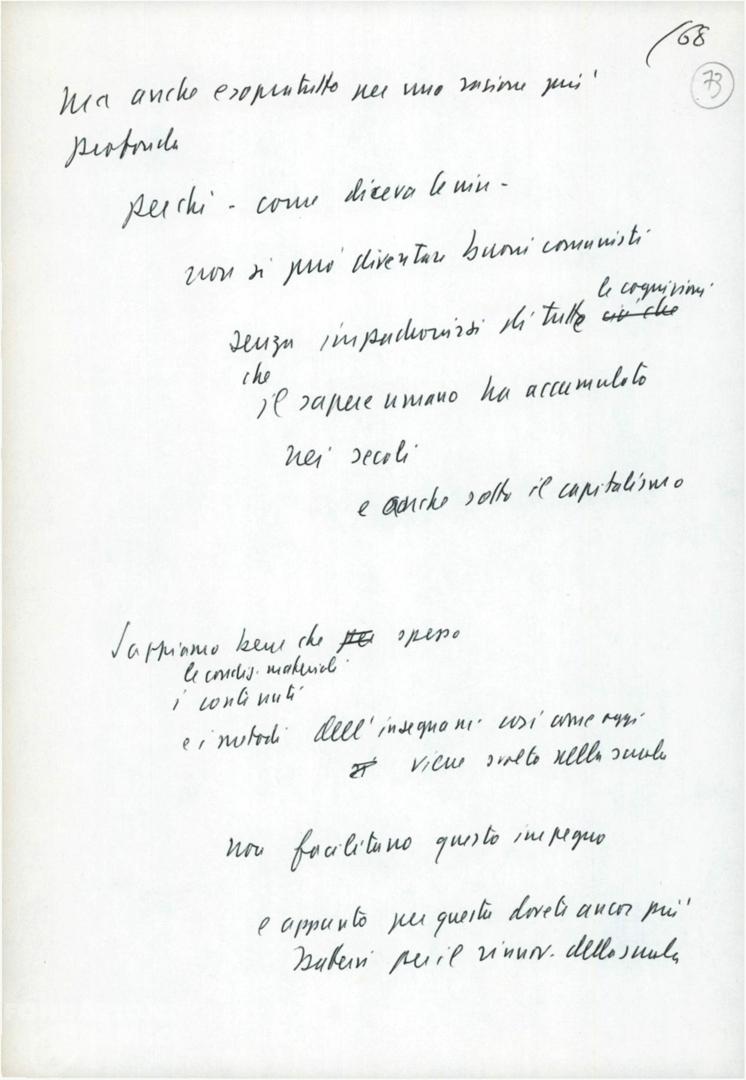 68
73
ma anche e sopratutto per una ragione più
profonda
perchè - come diceva Lenin -
non si può diventare buoni comunisti
le cognizioni
senza impadronirsi di tutte ciò che
che
il sapere umano ha accumulato
nei secoli
e anche sotto il capitalismo
Sappiamo bene che per spesso
le condiz. materiali
i contenuti
e i metodi dell'insegnam. così come oggi
si viene svolto nella scuola
non facilitano questo impegno
e appunto per questo dovete ancor più
battervi per il rinnov. della scuola
FONDAZIONE